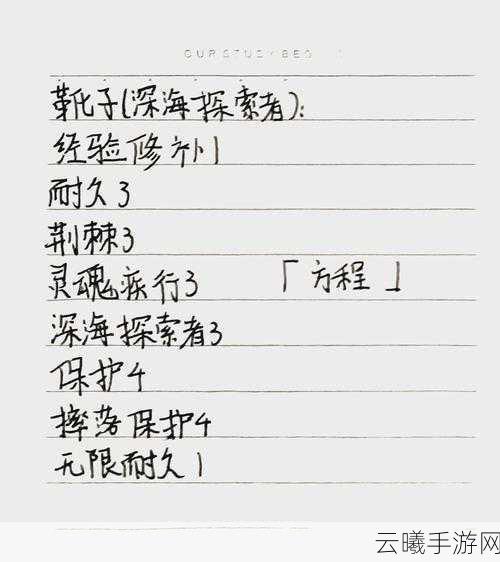 OURSTUDYBEG
靴子(深海探索者):
经验修补1
耐久3
荆棘3
灵魂疾行3 「方程」
深海探索者3
保护4
摔落保护4
无限耐久1
云曦手游网